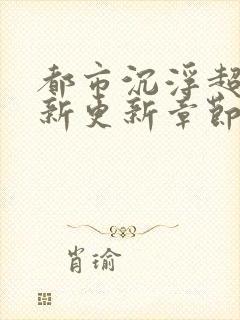 都市沉浮超
新更新章節
肖瑜